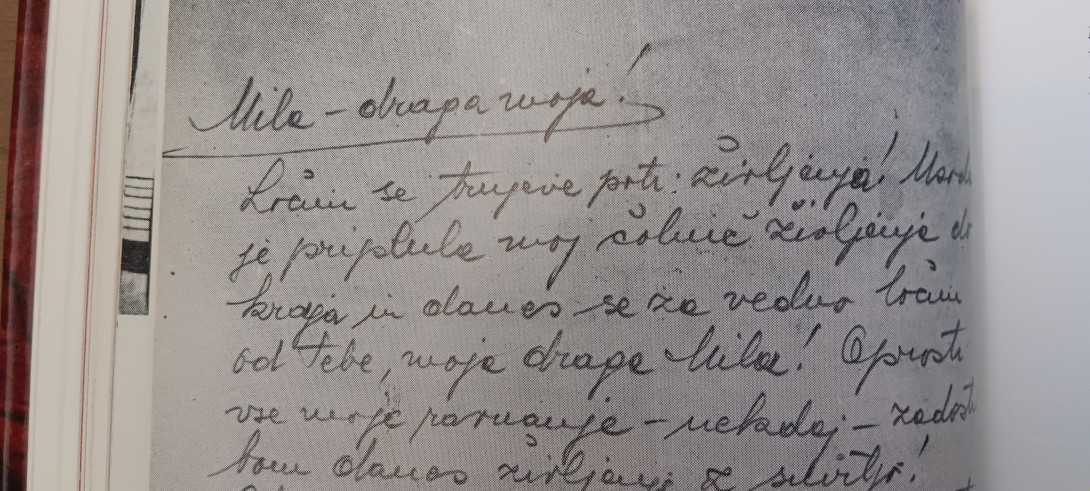 Mila - draga moja!
Ločim se trnjeve poti življenja!
je priplula moj čolnič življenja do
kraja in danes se za vedno ločim
od Tebe, moja draga Mila! Oprosti
vse moje ravnanje - nekdaj - zadosti
bom danes življenju z smrtjo!